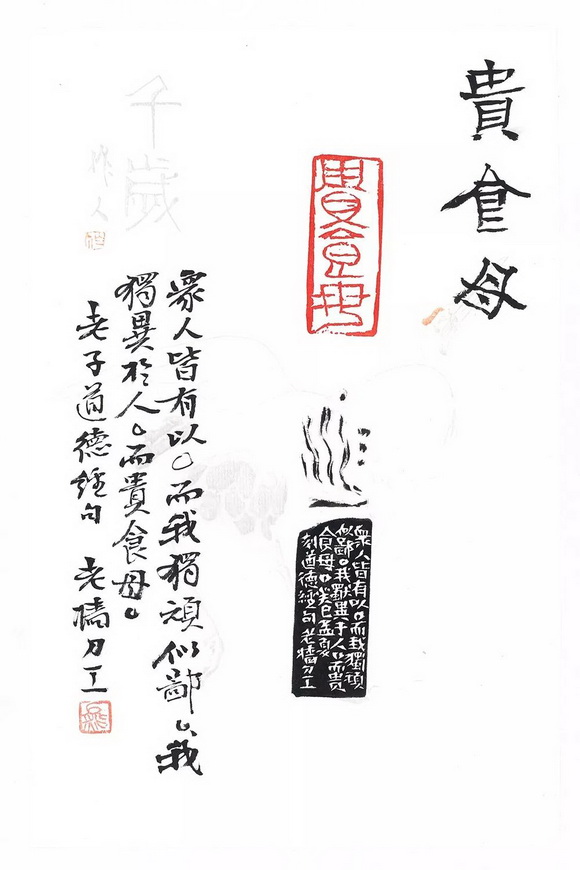 貴食母
貴食母
眾人皆有以。而我獨頑
似鄙。我獨異于人。而貴
食母。癸巳孟夏
刻道德經句老橋刀工
眾人皆有以。而我獨頑似鄙。我
獨異於人。而貴食母。
老子道德經句 老橋刀工
千歲
作人